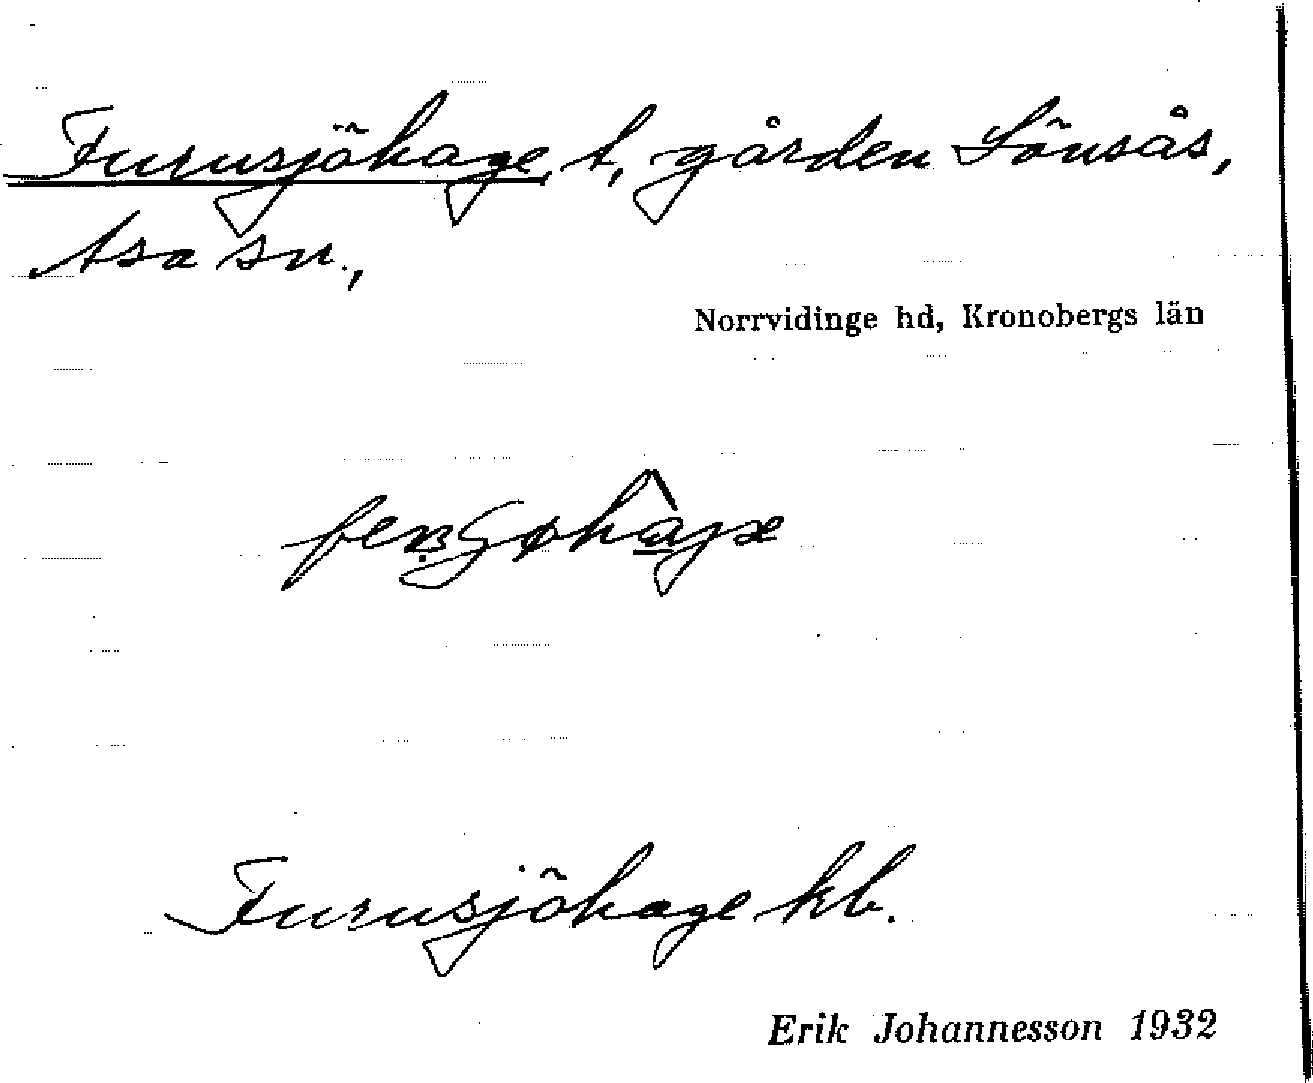 Furusjöhage, t, gården Lönsås,
Asa sn.,
Norrvidinge hd, Kronobergs län
Furusjöhage kb.
Erik Johannesson 1932